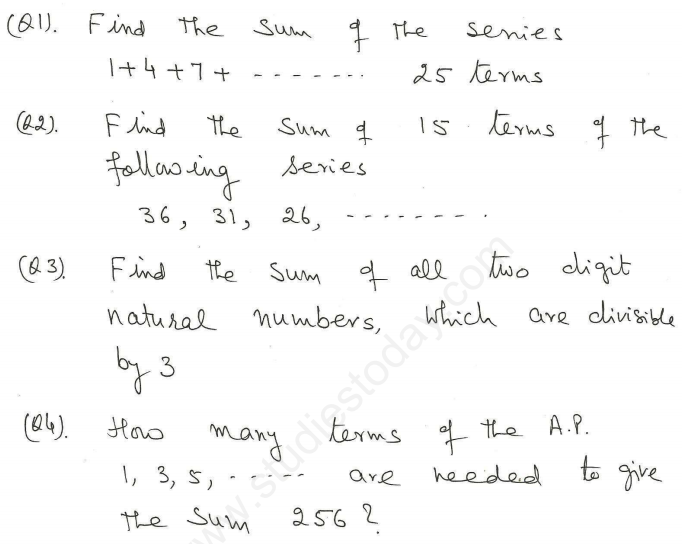 (Q1). Find the Sum of the series
1+4+7+ -------. 25 terms
(Q2). Find the Sum of 15 terms of the
following series
36, 31, 26, --------.
(Q3). Find the sum of all two digit
natural numbers, which are divisible
by 3
(Q4). How many terms of the A.P.
1, 3, 5, ----- are needed to give
the Sum 256?
www.studiestoday.com